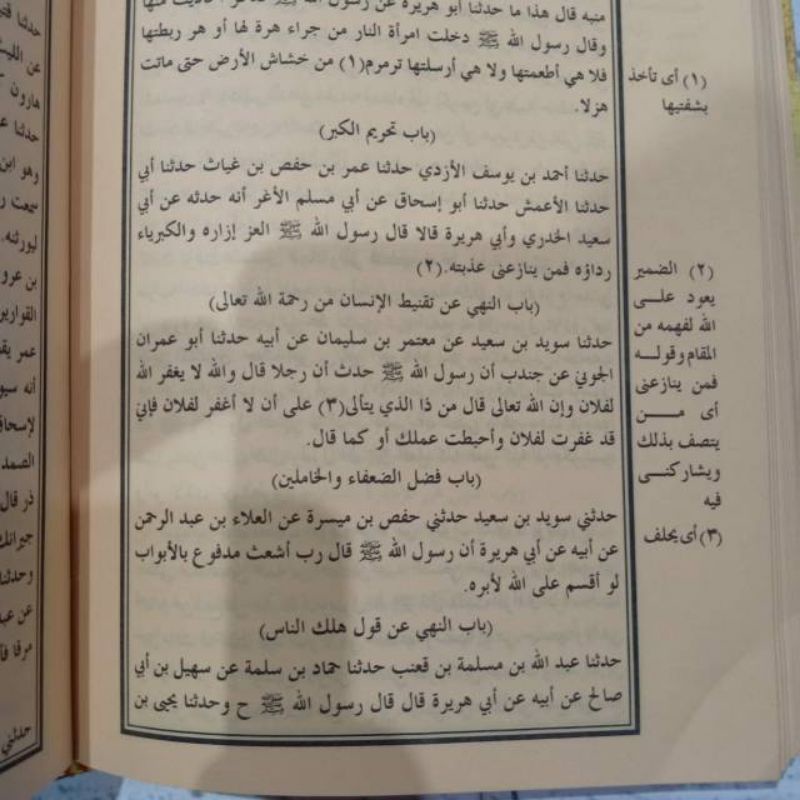 منبه قال هذا ما حدثنا أبو هريرة عن رسول الله ﷺ فذكر أحاديث منها
وقال رسول الله ﷺ دخلت امرأة النار من جراء هرة لها أو هر ربطتها
فلا هي أطعمتها ولا هي أرسلتها ترمرم(١) من خشاش الأرض حتى ماتت
هزلا.
(باب تحريم الكبر)
حدثنا أحمد بن يوسف الأزدي حدثنا عمر بن حفص بن غياث حدثنا أبي
حدثنا الأعمش حدثنا أبو إسحاق عن أبي مسلم الأغر أنه حدثه عن أبي
سعيد الخدري وأبي هريرة قالا قال رسول الله ﷺ العز إزاره والكبرياء
رداؤه فمن ينازعنى عذبته.(٢)
(باب النهي عن تقنيط الإنسان من رحمة الله تعالى)
حدثنا سويد بن سعيد عن معتمر بن سليمان عن أبيه حدثنا أبو عمران
الجوني عن جندب أن رسول الله ﷺ حدث أن رجلا قال والله لا يغفر الله
لفلان وإن الله تعالى قال من ذا الذي يتألى(٣) على أن لا أغفر لفلان فإني
قد غفرت لفلان وأحبطت عملك أو كما قال.
(باب فضل الضعفاء والخاملين)
حدثني سويد بن سعيد حدثني حفص بن ميسرة عن العلاء بن عبد الرحمن
عن أبيه عن أبي هريرة أن رسول الله ﷺ قال رب أشعث مدفوع بالأبواب
لو أقسم على الله لأبره.
(باب النهي عن قول هلك الناس)
حدثنا عبد الله بن مسلمة بن قعنب حدثنا حماد بن سلمة عن سهيل بن أبي
صالح عن أبيه عن أبي هريرة قال قال رسول الله ﷺ ح وحدثنا يحيى بن
(١) أى تأخذ
بشفتيها
(٢) الضمير
يعود على
الله لفهمه من
المقام وقوله
فمن ينازعنى
أى من
يتصف بذلك
ويشاركنى
فيه
(٣) أى يحلف
عن الليث
هارون
حدثنا
وهو ابن
سمعت
ليورثنه.
بن عرو
القوارير
عمر يقو
أنه سيو
لإسحاق
الصمد
ذر قال
جيرانك
وحدثنا
عن عبد
مرقا فأ
حدثني